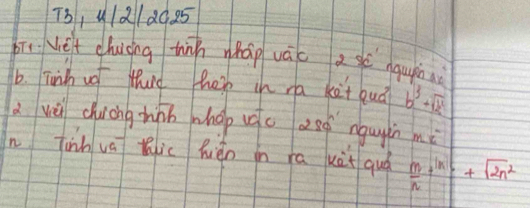 T3, 4/2/2025
BT1. Viết chương trình nhập vào 2 số nguyên
b. Tính và thực hiện in ra kết quả b³ +
2 viết chương trình nhập vào 2 số nguyên m
n Tính và thực hiện in ra kết quả m/n + + √2n²